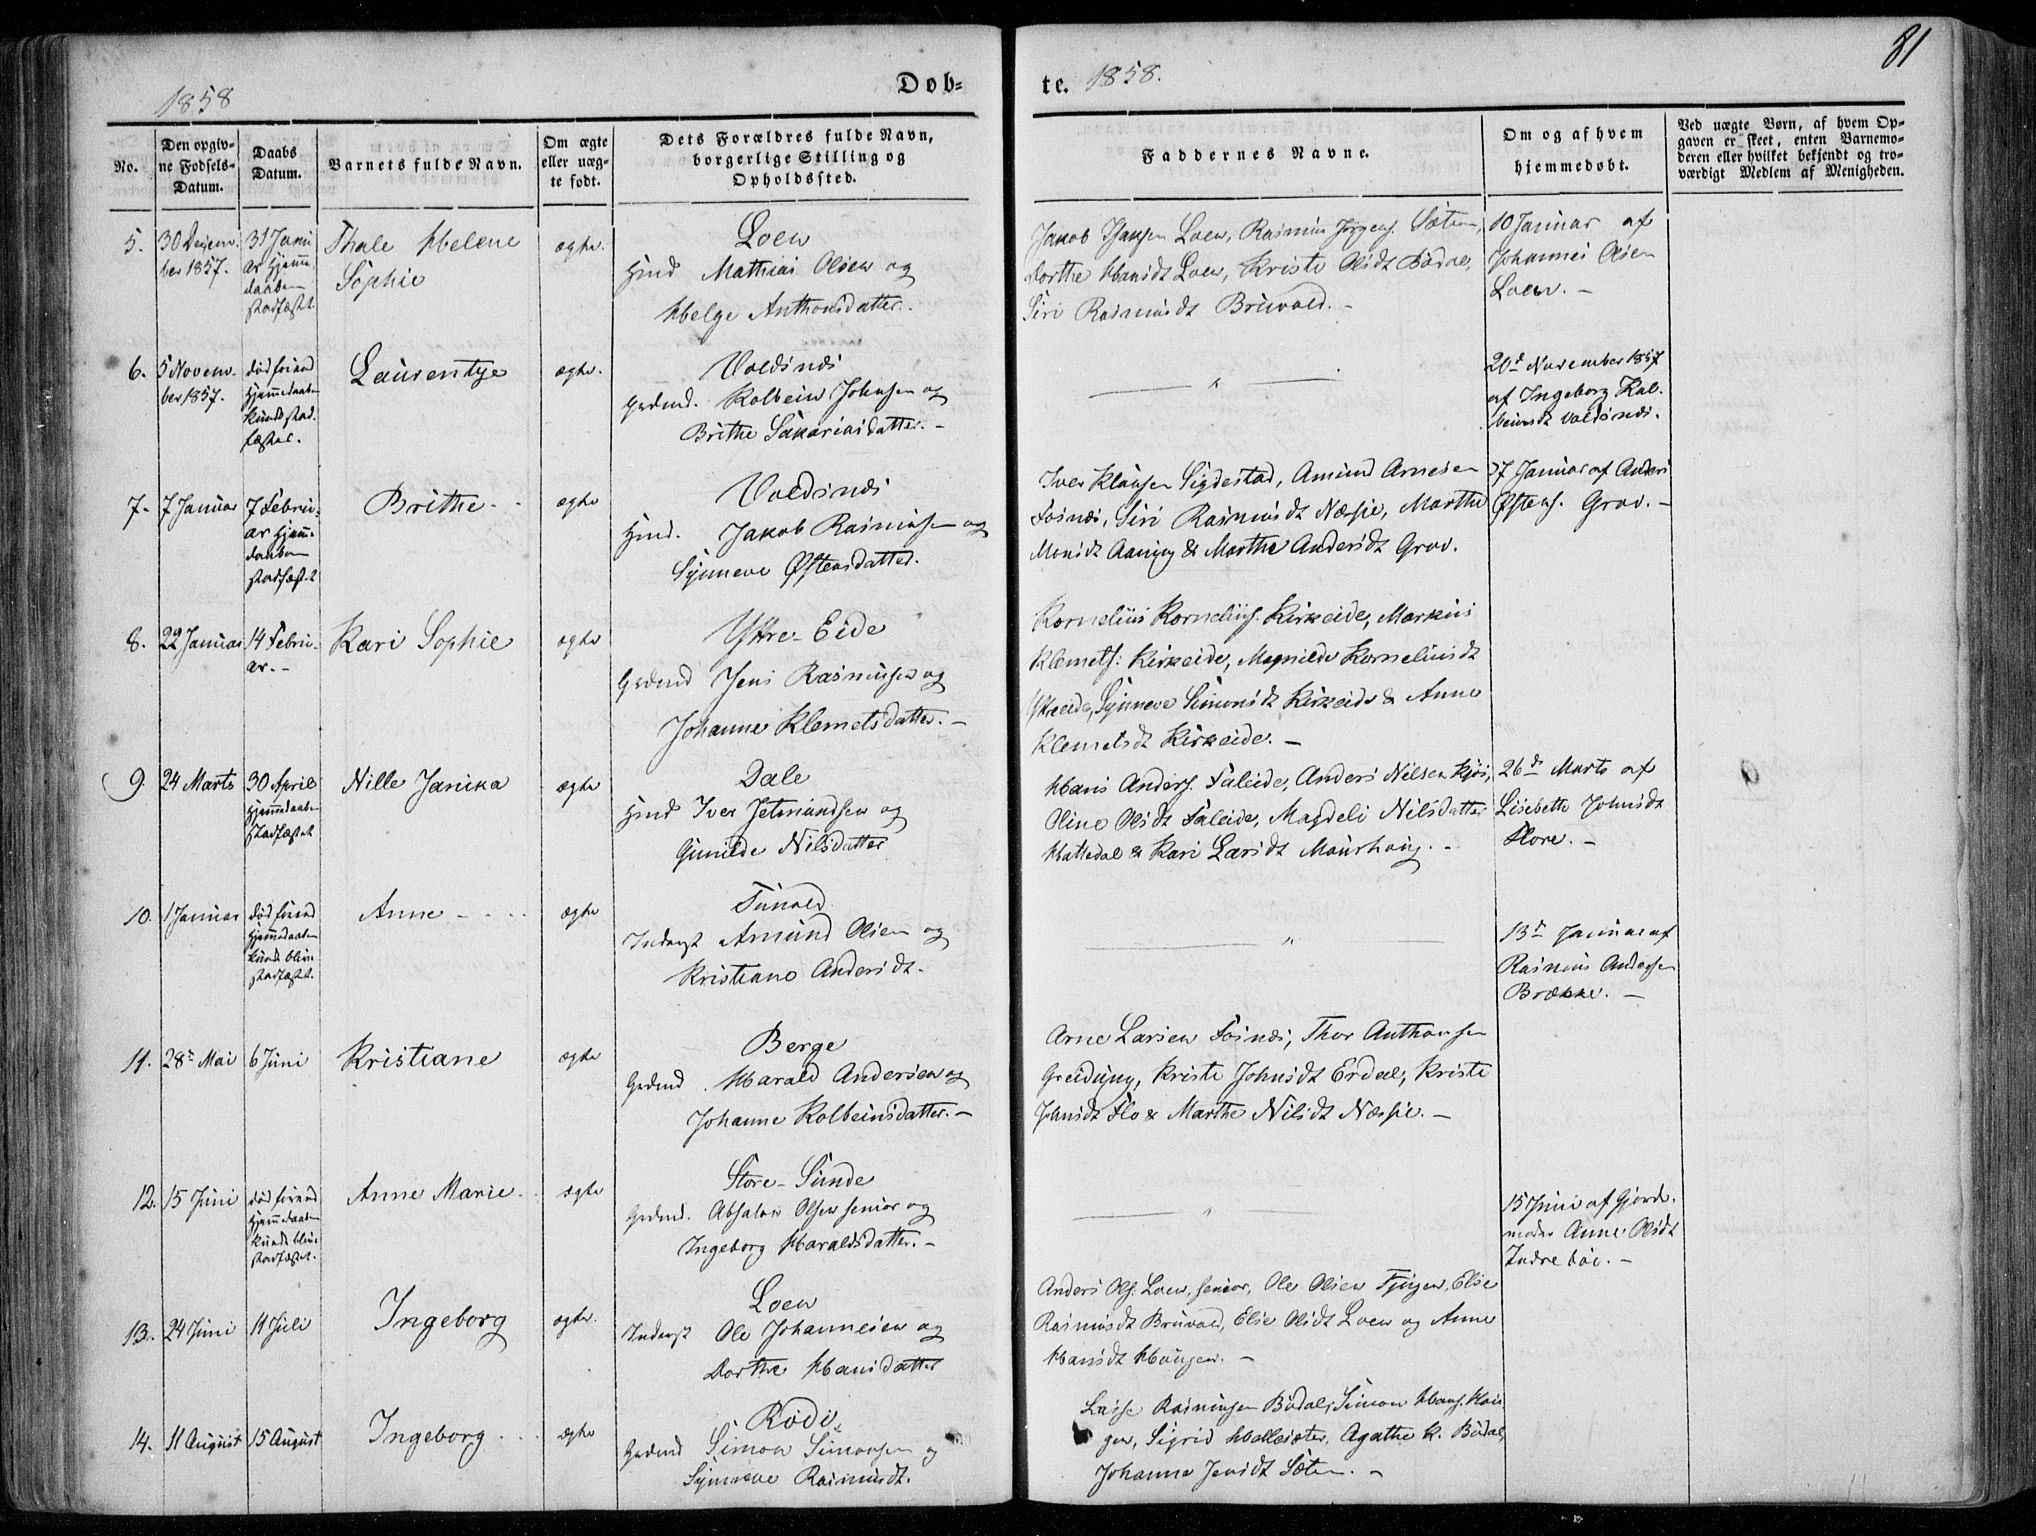 81
1858
Døb-
te. 1858.
No.
Den opgiv-
ne Fødsels-
Datum.
Daabs
Datum.
Barnets fulde Navn.
Om ægte
eller uæg-
te født.
Dets Forældres fulde Navn,
borgerlige Stilling og
Opholdssted.
Faddernes Navne.
Om og af hvem
hjemmedøbt.
Ved uægte Børn, af hvem Op-
gaven er skeet, enten Barnemo-
deren eller hvilket bekjendt og tro-
værdigt Medlem af Menigheden.
5.
30 Decem-
ber 1857.
31 Janu
ar Hjemme
daaben
stadfæstet.
Thale Helene
Sophie
ægte.
Loen
Hmd Mathias Olsen og
Helge Anthonsdatter.
Jakob Loen, Rasmus Jørgens. Sæten,
Dorthe Hansdt Loen, Kristi Olsdt Bødal,
Siri Rasmusdt Bruvold. -
10 Januar af
Johannes Olsen
Loen. -
6.
5 Novem-
ber 1857.
død førend
Hjemmedaaben
kunde stad-
fæstes.
Laurentje
ægte.
Voldsnæs
Gaardmd. Kolbein Johnsen og
Brithe Sakariasdatter. -
"
20d November 1857
af Ingeborg Kol-
beinsdt Voldsnæs.
7.
7 Januar
7 Febru-
ar Hjemme-
daaben
stadfæstet
Brithe -
ægte
Voldsnæs
Hmd. Jakob Rasmusen og
Synneve Østensdatter.
Iver Klausen Sigdestad, Amund Arnesen
Fosnæs, Siri Rasmusdt Næsje, Marthe
Monsdt Aaning & Marthe Andersdt Grov.
27 Januar af Anders
Østens. Grov. -
8.
22 Januar
14 Febru-
ar. -
Kari Sophie
ægte
Ytre-Eide
Gaardmd Jens Rasmusen og
Johanne Klemetsdatter. -
Kornelius Kornelius. Kirkeide, Markus
Klemets. Kirkeide, Magnilde Korneliusdt
Ytreeide, Synneve Simonsdt Kirkeide & Anne
Klemetsdt Kirkeide. -
9.
24 Marts
30 April
Hjemmedaaben
stadfæstet
Nille Janika
ægte
Dale
Hmd Iver Jetmundsen og
Gunilde Nilsdatter
Hans Anders. Faleide, Anders Nilsen Kjøs,
Oline Olsdt Faleide, Magdeli Nilsdatter
Hattedal & Kari Larsdt Maurhaug. -
26d Marts af
Lisebette Johnsdt
Flore. -
10.
1 Januar
død førend
Hjemmedaaben
kunde blive
stadfæstet.
Anne -
ægte
Tunold
Inderst Amund Olsen og
Kristiane Andersdt.
"
13d Januar af
Rasmus Andersen
Brække. -
11.
28d Mai
6 Juni
Kristiane
ægte
Berge
Gaardmd. Harald Andersen og
Johanne Kolbeinsdatter. -
Arne Larsen Fosnæs, Thor Anthonsen
Greidung, Kristi Johnsdt Erdal, Kristi
Johnsdt Flo & Marthe Nilsdt Næsje. -
12.
15 Juni
død førend
Hjemmedaaben
kunde blive
stadfæstet.
Anne Marie
ægte
Store-Sunde
Gaardmd. Absalon Olsen senior og
Ingeborg Haraldsdatter. -
"
15 Juni af Gjorde-
moder Anne Olsdt
Indrebøe. -
13.
24 Juni
11 Juli
Ingeborg
ægte.
Loen
Inderst Ole Johannesen og
Dorthe Hansdatter
Anders Ols. Loen, senior, Ole Olsen Tjugen, Elie
Rasmusdt Bruvold, Elie Olsdt Loen og Anne
Hansdt Haugen. -
14.
11 August
15 August
Ingeborg
ægte
Rødi
Gaardmd Simon Simonsen og
Synneve Rasmusdt.
Lasse Rasmusen Bødal, Simon Hans. Hau
gen, Sigrid Hellesæter, Agathe R. Bødal,
Johanne Jensdt Sæten. -